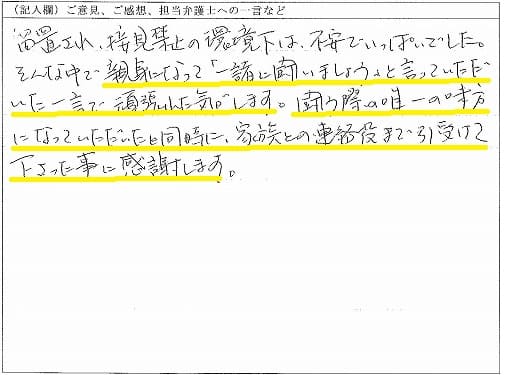 （記入欄）ご意見、ご感想、担当弁護士への一言など
留置され、接見禁止の環境下は、不安でいっぱいでした。
そんな中で親身になって「一緒に闘いましょう」と言っていただ
いた一言で頑張れた気がします。闘う際の唯一の味方
になっていただいたと同時に、家族との連絡役まで引受けて
下さった事に感謝します。